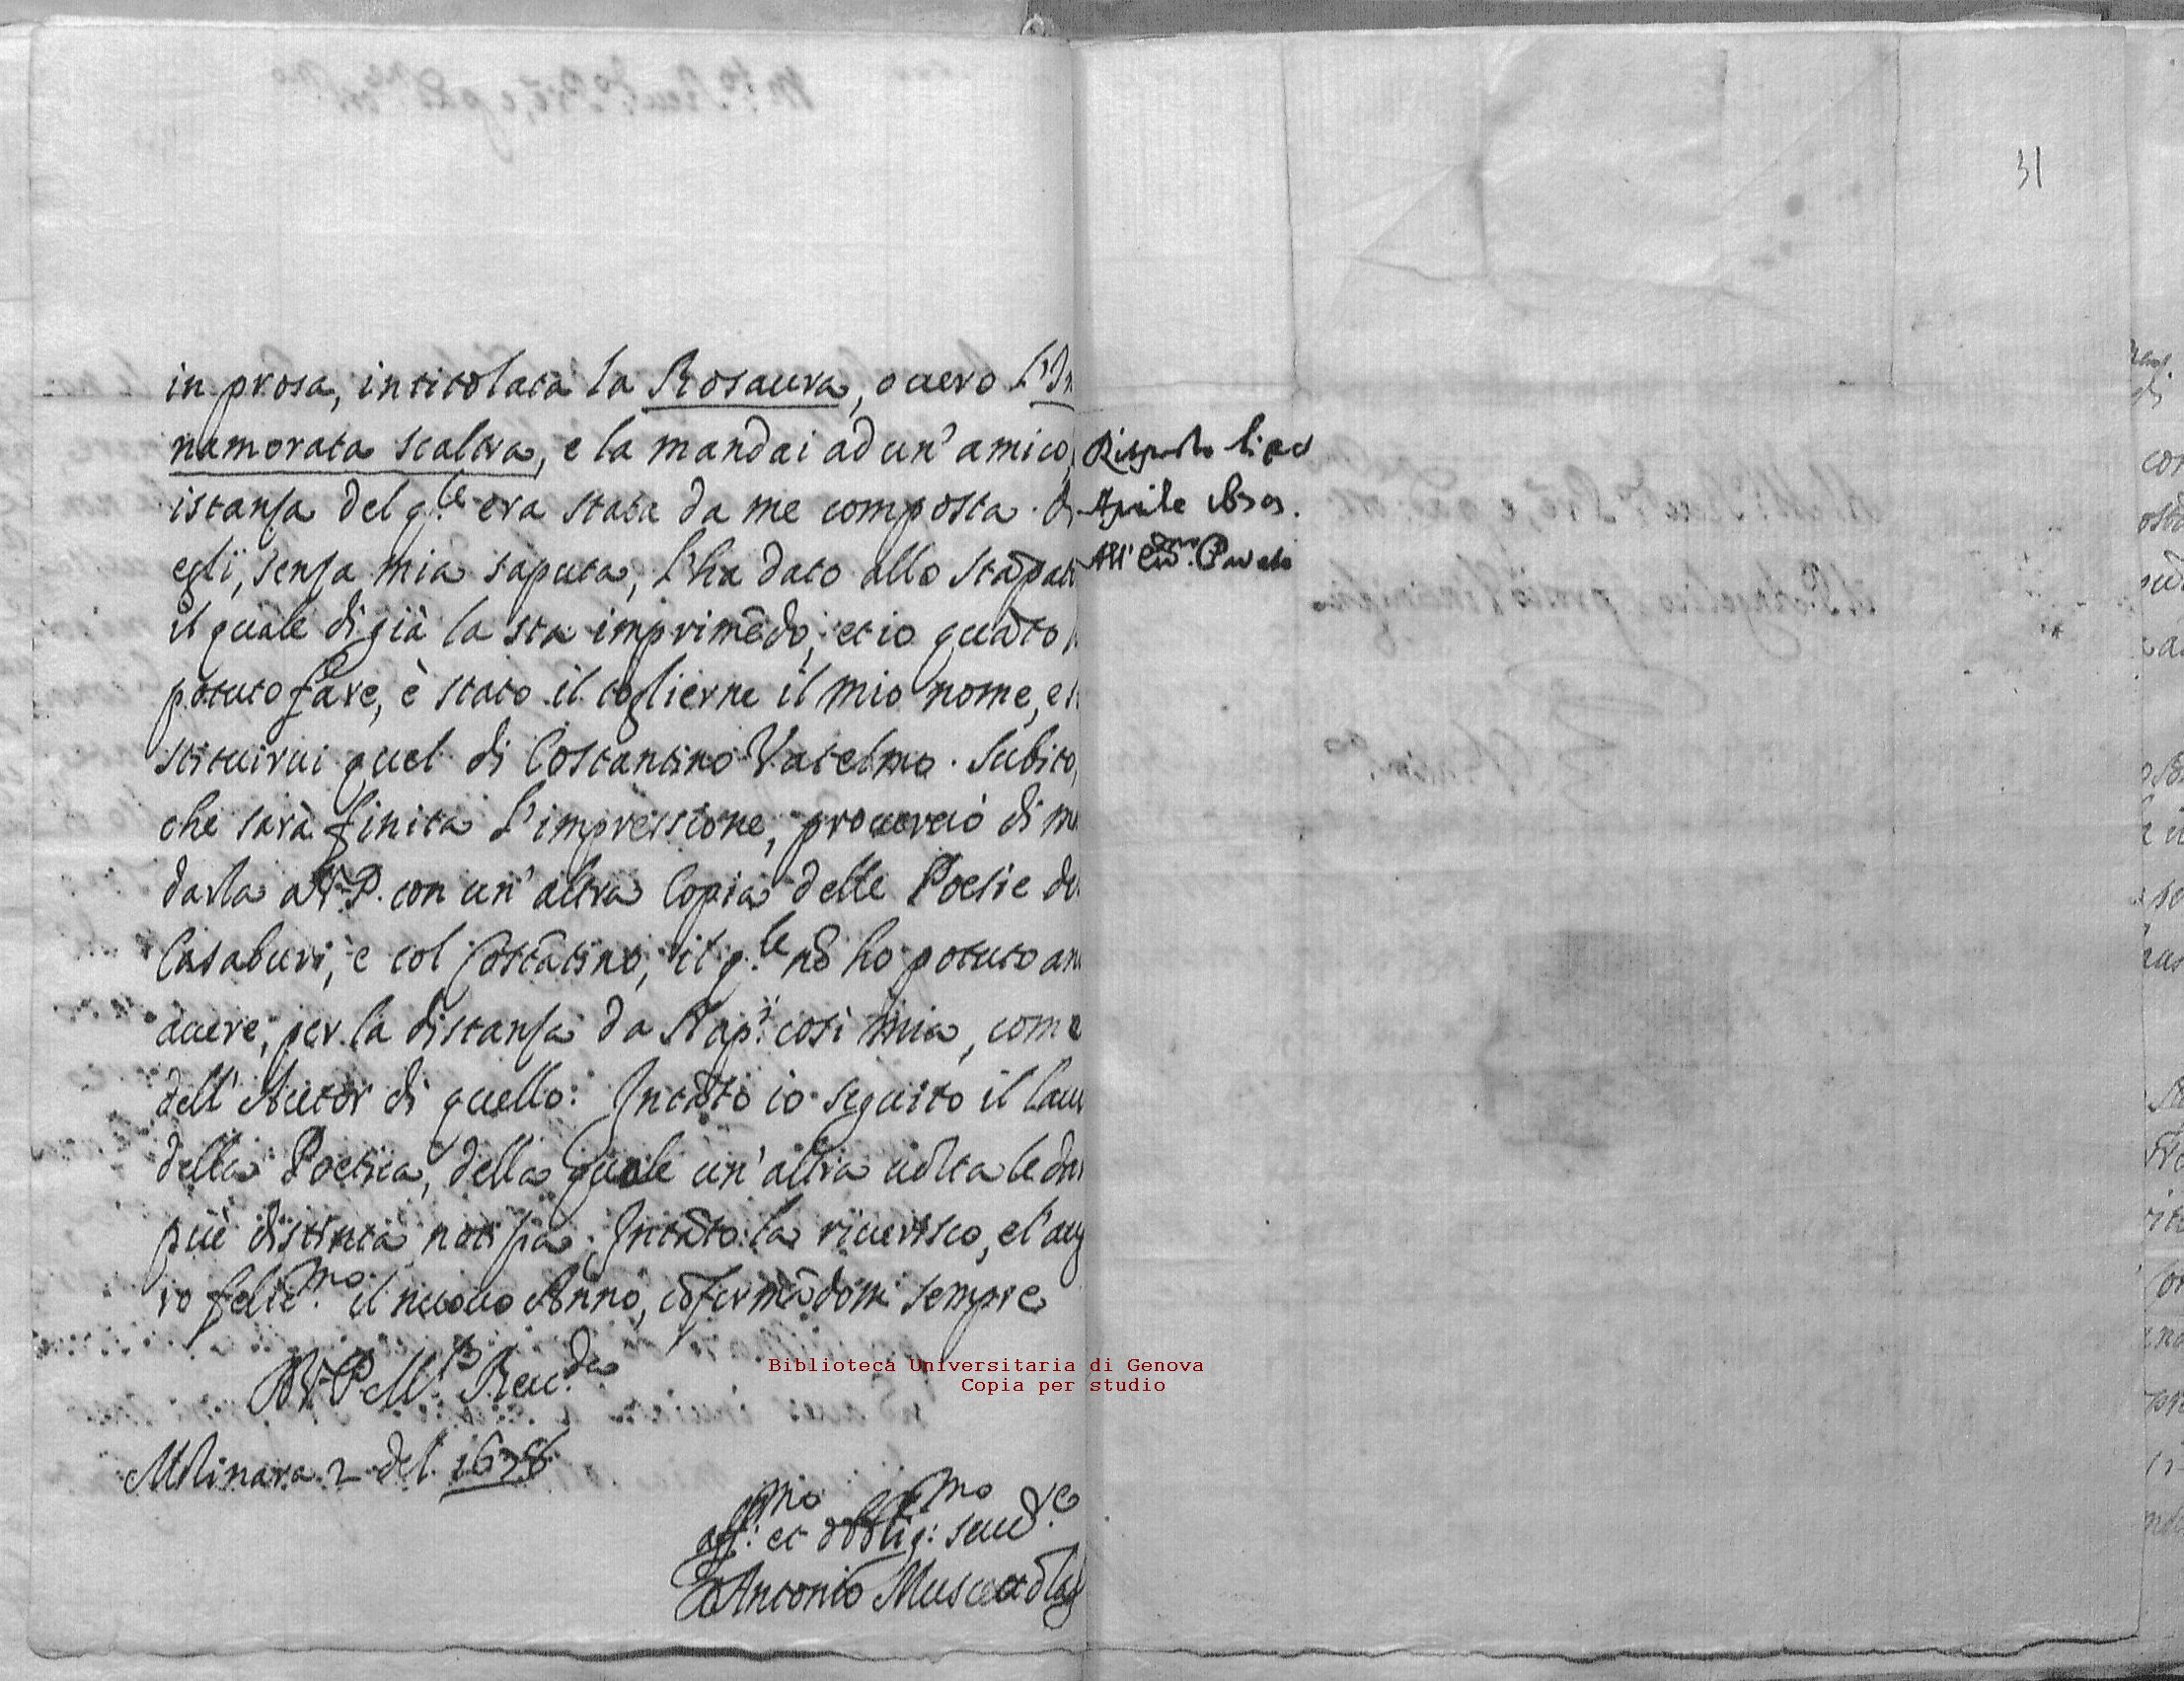 in prosa, intitolata la Rosaura, ouero l'In
namorata scaltra, e la mandai ad un' amico,
istanza del q.le era stata da me composta.
egli, senza mia saputa, l'ha dato allo stãpat
il quale di già la sta imprimẽdo, et io quãto
potuto fare, è stato il toglierne il mio nome, e
stituirui quel di Costantino Vatelmo. Subito,
che sarà finita l'impressione, procurerò di m
darla a V.P. con un' altra Copia delle Poesie de
Casaburi, e col Costãtino, il q.le nõ ho potuto an
auere, per la distanza da Nap.i così mia, come
dell' Autor di quello. Intãto io seguito il lau
della Poetica, della quale un' altra uolta le da
piu distinta notizia. Intãto la riuerisco, e l'aug
ro felic.mo il nuouo Anno, cõfermãdomi sempre
D. V. P. M. Reu.da
Molinara 2 del 1678
aff.mo et obblig.mo seru.re
Antonio Muscettola
31
Aprile
All'
Biblioteca Universitaria di Genova
Copia per studio